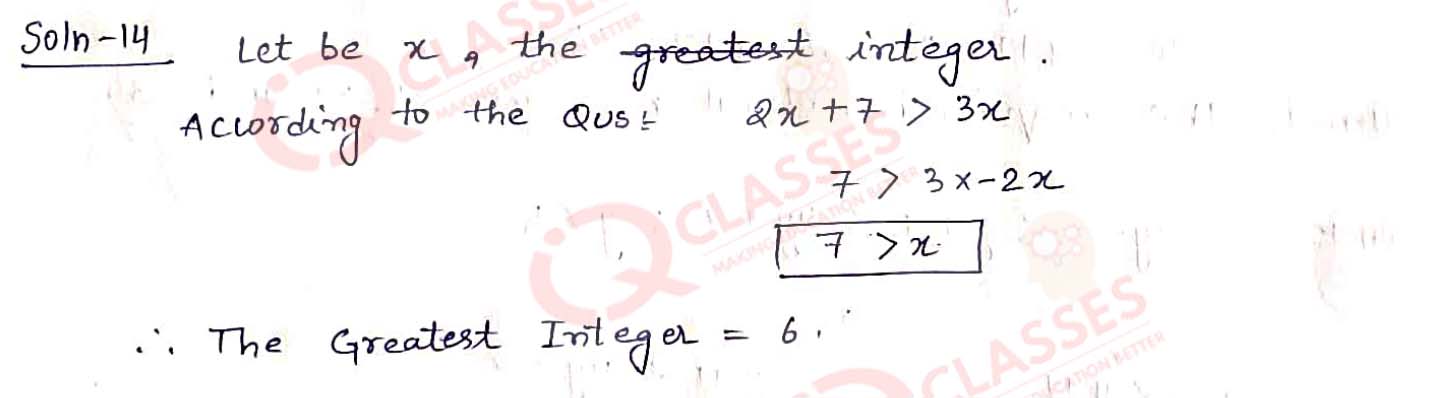 Soln-14 Let be x, the greatest integer.
According to the Qus:- 2x + 7 > 3x
7 > 3x-2x
7 > x
∴ The Greatest Integer = 6.
CLASSES
MAKING EDUCATION BETTER
CLASSES
MAKING EDUCATION BETTER
CLASSES
EDUCATION BETTER